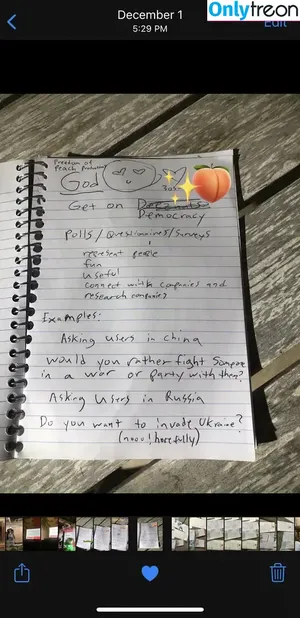 December 1
5:29 PM
Onlytreon
Edit
Freedom of
God
Get on
Democracy
Polls / Questionnaires / Surveys
represent people
fun
useful
connect with companies and
research companies
Examples:
Asking users in China
would you rather fight someone
in a war or party with them?
Asking Users in Russia
Do you want to invade Ukraine?
(nooo! hopefully)